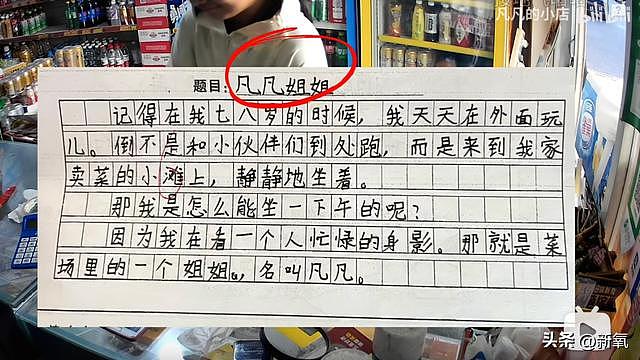 凡凡的小店
题目：凡凡姐姐
记得在我七八岁的时候，我天天在外面玩
儿。倒不是和小伙伴们到处跑，而是来到我家
卖菜的小滩上，静静地坐着。
那我是怎么能坐一下午的呢？
因为我在看一个人忙碌的身影。那就是菜
场里的一个姐姐，名叫凡凡。
头条 @新氧